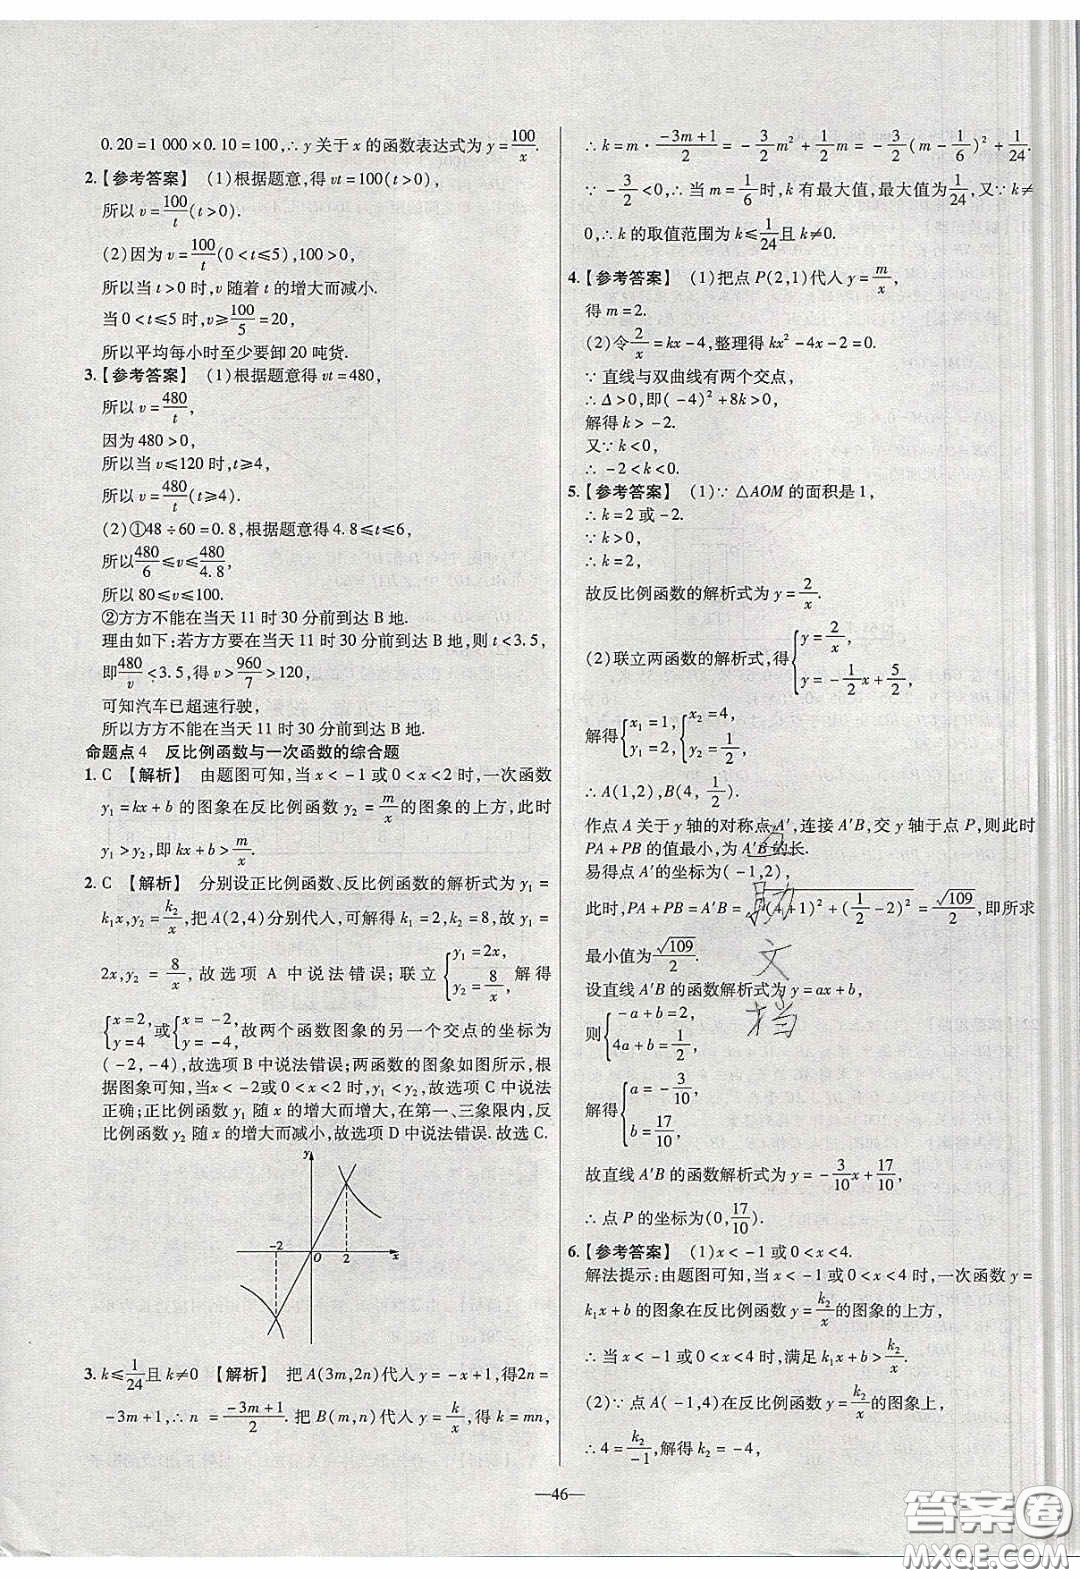 0.20=1 000×0.10=100,∴y 关于 x 的函数表达式为 y=100/x.
2.【参考答案】 (1)根据题意,得 vt=100(t>0),
所以 v=100/t(t>0).
(2)因为 v=100/t(0<t≤5),100>0,
所以当 t>0 时,v 随着 t 的增大而减小.
当 0<t≤5 时,v≥100/5=20,
所以平均每小时至少要卸 20 吨货.
3.【参考答案】 (1)根据题意得 vt=480,
所以 v=480/t,
因为 480>0,
所以当 v≤120 时,t≥4,
所以 v=480/t(t≥4).
(2)①48÷60=0.8,根据题意得 4.8≤t≤6,
所以 480/6≤v≤480/4.8,
所以 80≤v≤100.
②方方不能在当天 11 时 30 分前到达 B 地.
理由如下:若方方要在当天 11 时 30 分前到达 B 地,则 t<3.5,
即 480/v<3.5,得 v>960/7>120,
可知汽车已超速行驶,
所以方方不能在当天 11 时 30 分前到达 B 地.
命题点 4 反比例函数与一次函数的综合题
1. C 【解析】 由题图可知,当 x<-1 或 0<x<2 时,一次函数
y₁=kx+b 的图象在反比例函数 y₂=m/x 的图象的上方,此时
y₁>y₂,即 kx+b>m/x.
2. C 【解析】 分别设正比例函数、反比例函数的解析式为 y₁=
k₁x,y₂=k₂/x,把 A(2,4)分别代入,可解得 k₁=2,k₂=8,故 y₁=
2x,y₂=8/x,故选项 A 中说法错误;联立{y₁=2x, y₂=8/x,解得
{x=2, y=4 或{x=-2, y=-4,故两个函数图象的另一个交点的坐标为
(-2,-4),故选项 B 中说法错误;两函数的图象如图所示,根
据图象可知,当 x<-2 或 0<x<2 时,y₁<y₂,故选项 C 中说法
正确;正比例函数 y₁ 随 x 的增大而增大,在第一、三象限内,反
比例函数 y₂ 随 x 的增大而减小,故选项 D 中说法错误.故选 C.
y
-2 O 2 x
3. k≤1/24且 k≠0 【解析】 把 A(3m,2n)代入 y=-x+1,得2n=
-3m+1,∴n=(-3m+1)/2.把 B(m,n)代入 y=k/x,得 k=mn,
∴k=m·(-3m+1)/2=-3/2m²+1/2m=-3/2(m-1/6)²+1/24.
∵-3/2<0,∴当 m=1/6时,k 有最大值,最大值为1/24,又∵k≠
0,∴k 的取值范围为 k≤1/24且 k≠0.
4.【参考答案】 (1)把点 P(2,1)代入 y=m/x,
得 m=2.
(2)令2/x=kx-4,整理得 kx²-4x-2=0.
∵直线与双曲线有两个交点,
∴Δ>0,即(-4)²+8k>0,
解得 k>-2.
又∵k<0,
∴-2<k<0.
5.【参考答案】 (1)∵△AOM 的面积是 1,
∴k=2 或-2.
∵k>0,
∴k=2,
故反比例函数的解析式为 y=2/x.
(2)联立两函数的解析式,得{y=2/x, y=-1/2x+5/2,
解得{x₁=1, y₁=2,{x₂=4, y₂=1/2,
∴A(1,2),B(4,1/2).
作点 A 关于 y 轴的对称点 A′,连接 A′B,交 y 轴于点 P,则此时
PA+PB 的值最小,为 A′B 的长.
易得点 A′的坐标为(-1,2),
此时,PA+PB=A′B=√((4+1)²+(1/2-2)²)=√109/2,即所求
最小值为√109/2.
设直线 A′B 的函数解析式为 y=ax+b,
则{-a+b=2, 4a+b=1/2,
解得{a=-3/10, b=17/10,
故直线 A′B 的函数解析式为 y=-3/10x+17/10,
∴点 P 的坐标为(0,17/10).
6.【参考答案】 (1)x<-1 或 0<x<4.
解法提示:由题图可知,当 x<-1 或 0<x<4 时,一次函数 y=
k₁x+b 的图象在反比例函数 y=k₂/x的图象的上方,
∴当 x<-1 或 0<x<4 时,满足 k₁x+b>k₂/x.
(2)∵点 A(-1,4)在反比例函数 y=k₂/x的图象上,
∴4=k₂/-1,解得 k₂=-4,
—46—
答案圈
MXQE.COM